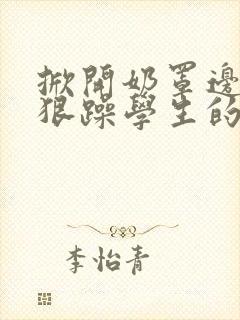 掀開奶罩邊
狠躁學生的
李怡青